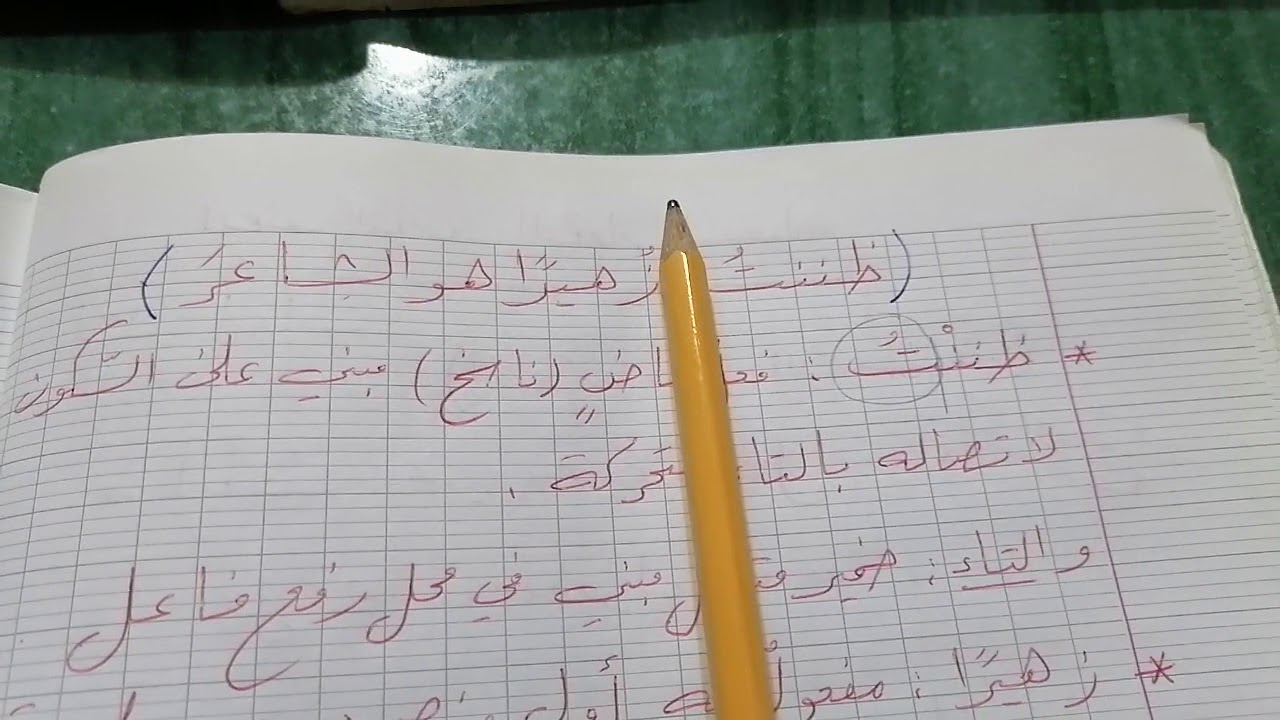 (ظننتُ زهيرًا هو الشاعرُ)
* ظننْتُ : فعل ماضٍ (ناسخ) مبني على السّكون
لاتصاله بالتاء المتحركة .
والتاء : ضمير متصل مبني في محل رفع فاعل
* زهيرًا : مفعول به أول